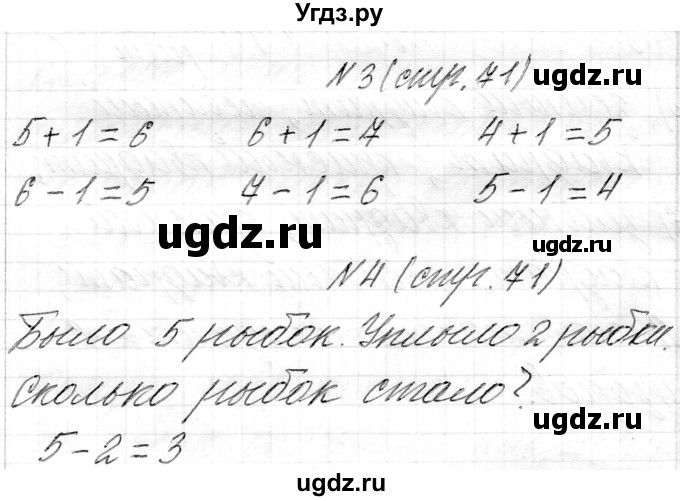 Угдз.ру
№3 (стр. 71) ugdz.ru
5+1=6 6+1=7 4+1=5
6-1=5 7-1=6 5-1=4
ugdz.ru ugdz.ru
№4 (стр. 71)
Было 5 рыбок. Уплыло 2 рыбки.
Сколько рыбок стало?
ugdz.ru
5-2=3
ugdz.ru